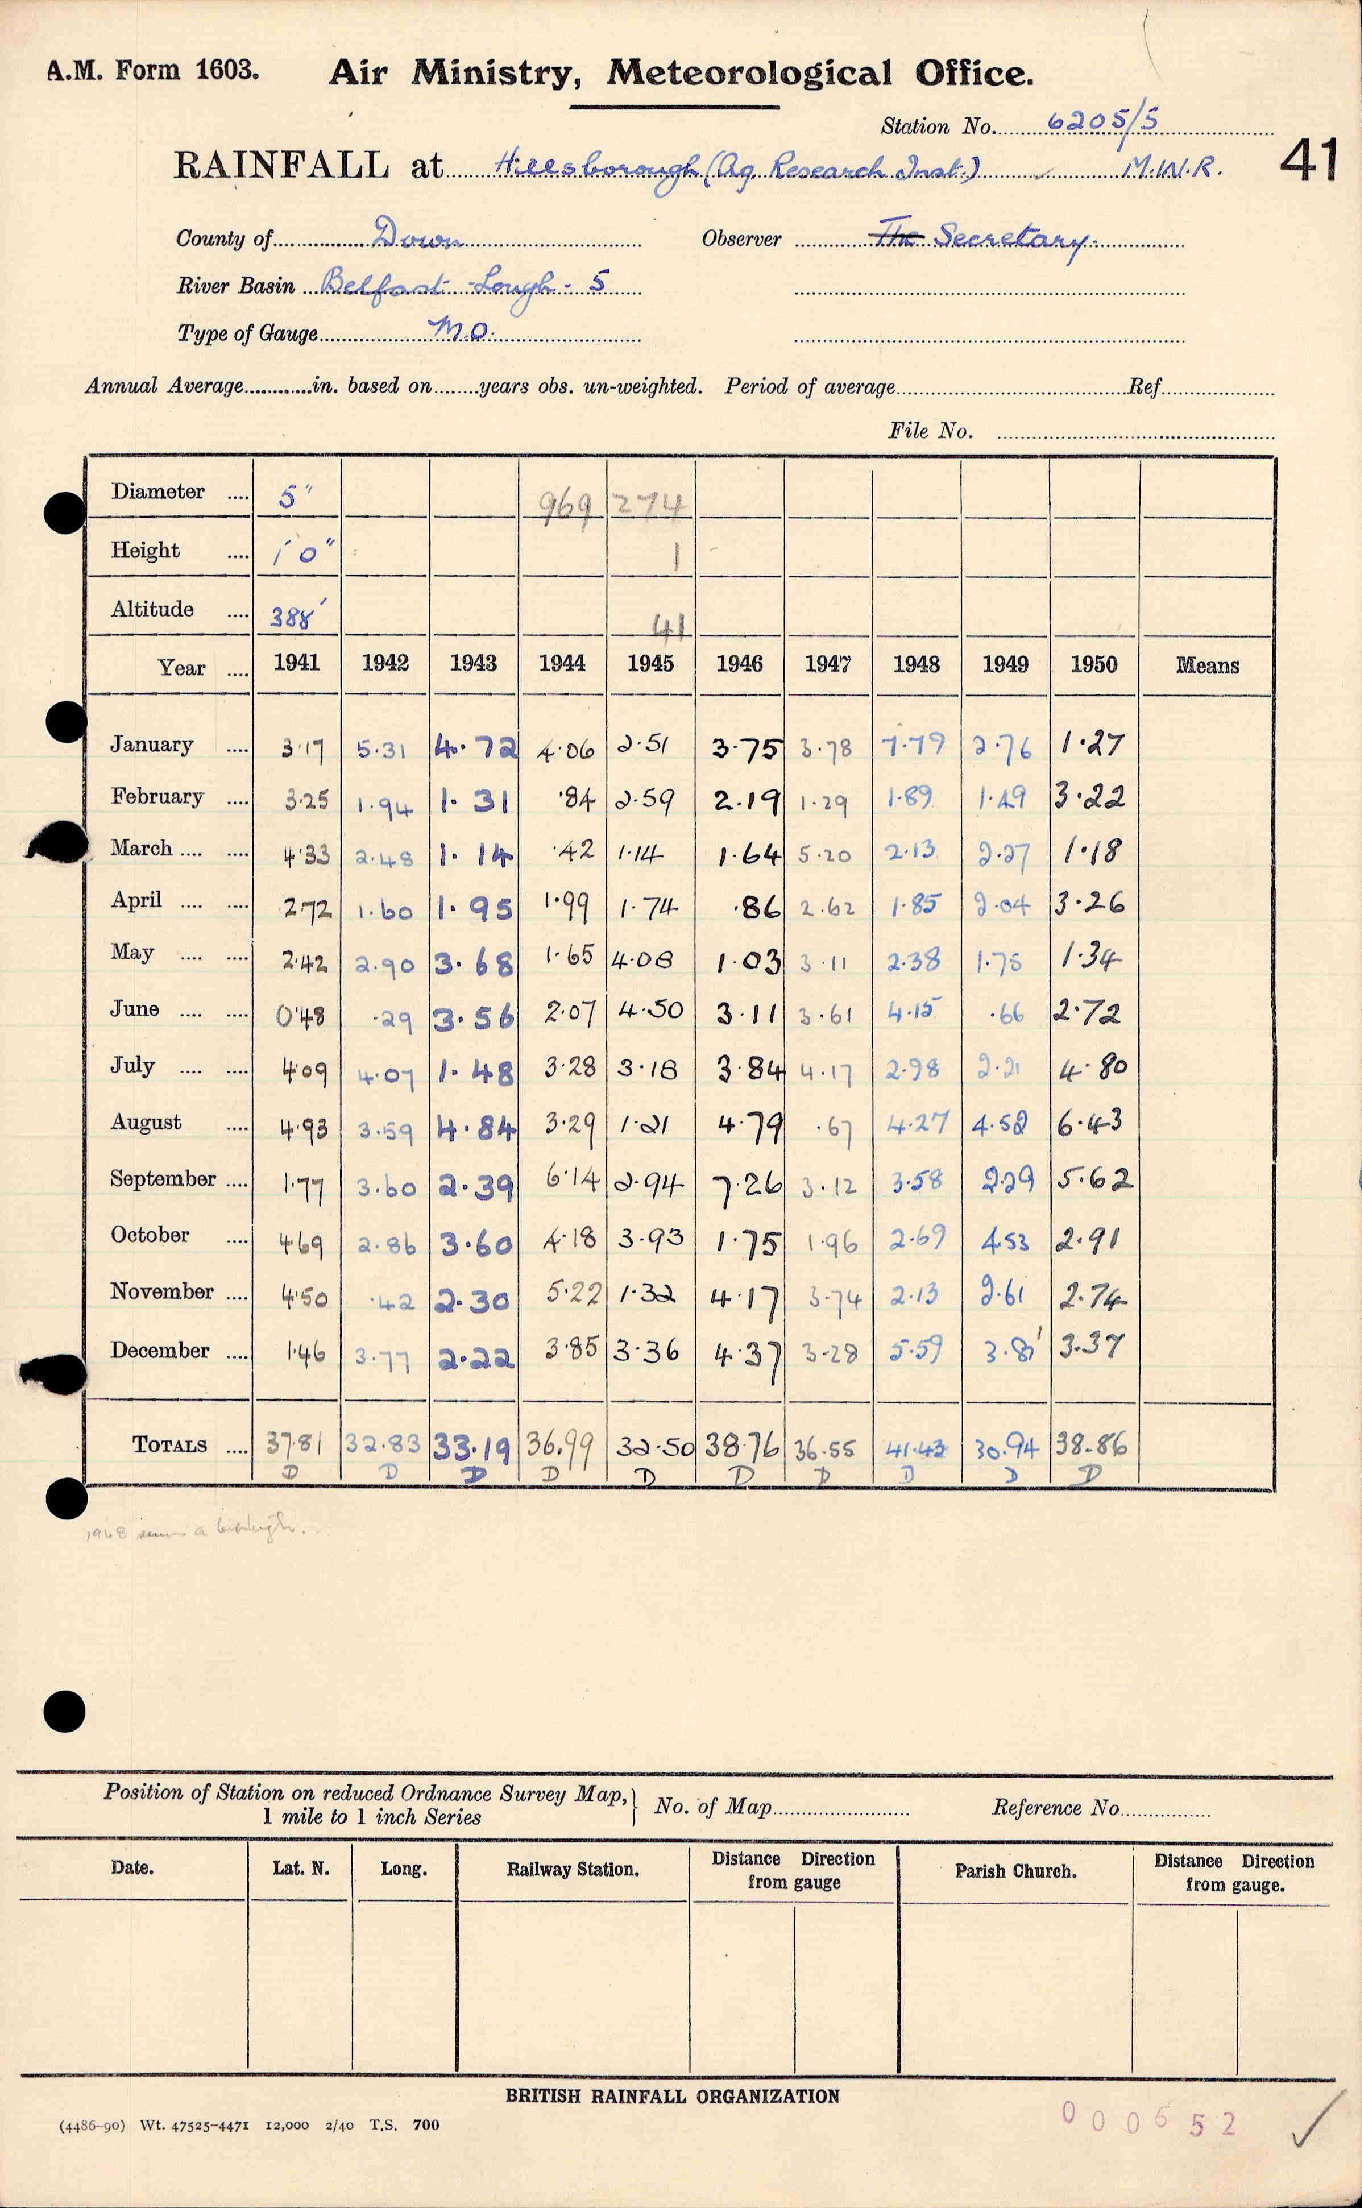 A.M. Form 1603. Air Ministry, Meteorological Office.
Station No. 6205/5
RAINFALL at Hillsborough (Ag. Research Inst.) M.W.R. 41
County of Down Observer The Secretary.
River Basin Belfast Lough - 5
Type of Gauge M.O.
Annual Average in. based on years obs. un-weighted. Period of average Ref
File No.
Diameter .... 5" 969 274
Height .... 1'0" 1
Altitude .... 388' 41
Year .... 1941 1942 1943 1944 1945 1946 1947 1948 1949 1950 Means
January .... 3.17 5.31 4.72 4.06 2.51 3.75 3.78 7.79 2.76 1.27
February .... 3.25 1.94 1.31 .84 2.59 2.19 1.29 1.89 1.49 3.22
March .... .... 4.33 2.48 1.14 .42 1.14 1.64 5.20 2.13 2.27 1.18
April .... .... 2.72 1.60 1.95 1.99 1.74 .86 2.62 1.85 2.04 3.26
May .... .... 2.42 2.90 3.68 1.65 4.08 1.03 3.11 2.38 1.75 1.34
June .... .... 0.48 .29 3.56 2.07 4.50 3.11 3.61 4.15 .66 2.72
July .... .... 4.09 4.07 1.48 3.28 3.18 3.84 4.17 2.98 2.21 4.80
August .... 4.93 3.59 4.84 3.29 1.21 4.79 .67 4.27 4.52 6.43
September .... 1.77 3.60 2.39 6.14 2.94 7.26 3.12 3.58 2.29 5.62
October .... 4.69 2.86 3.60 4.18 3.93 1.75 1.96 2.69 4.53 2.91
November .... 4.50 .42 2.30 5.22 1.32 4.17 3.74 2.13 2.61 2.74
December .... 1.46 3.77 2.22 3.85 3.36 4.37 3.28 5.59 3.81 3.37
TOTALS .... 37.81 32.83 33.19 36.99 32.50 38.76 36.55 41.43 30.94 38.86
D D D D D D D D D D
1948 seems a bit high.
Position of Station on reduced Ordnance Survey Map, } No. of Map Reference No.
1 mile to 1 inch Series
Date. Lat. N. Long. Railway Station. Distance Direction from gauge Parish Church. Distance Direction from gauge.
BRITISH RAINFALL ORGANIZATION
(4486-90) Wt. 47525-4471 12,000 2/40 T.S. 700
000652